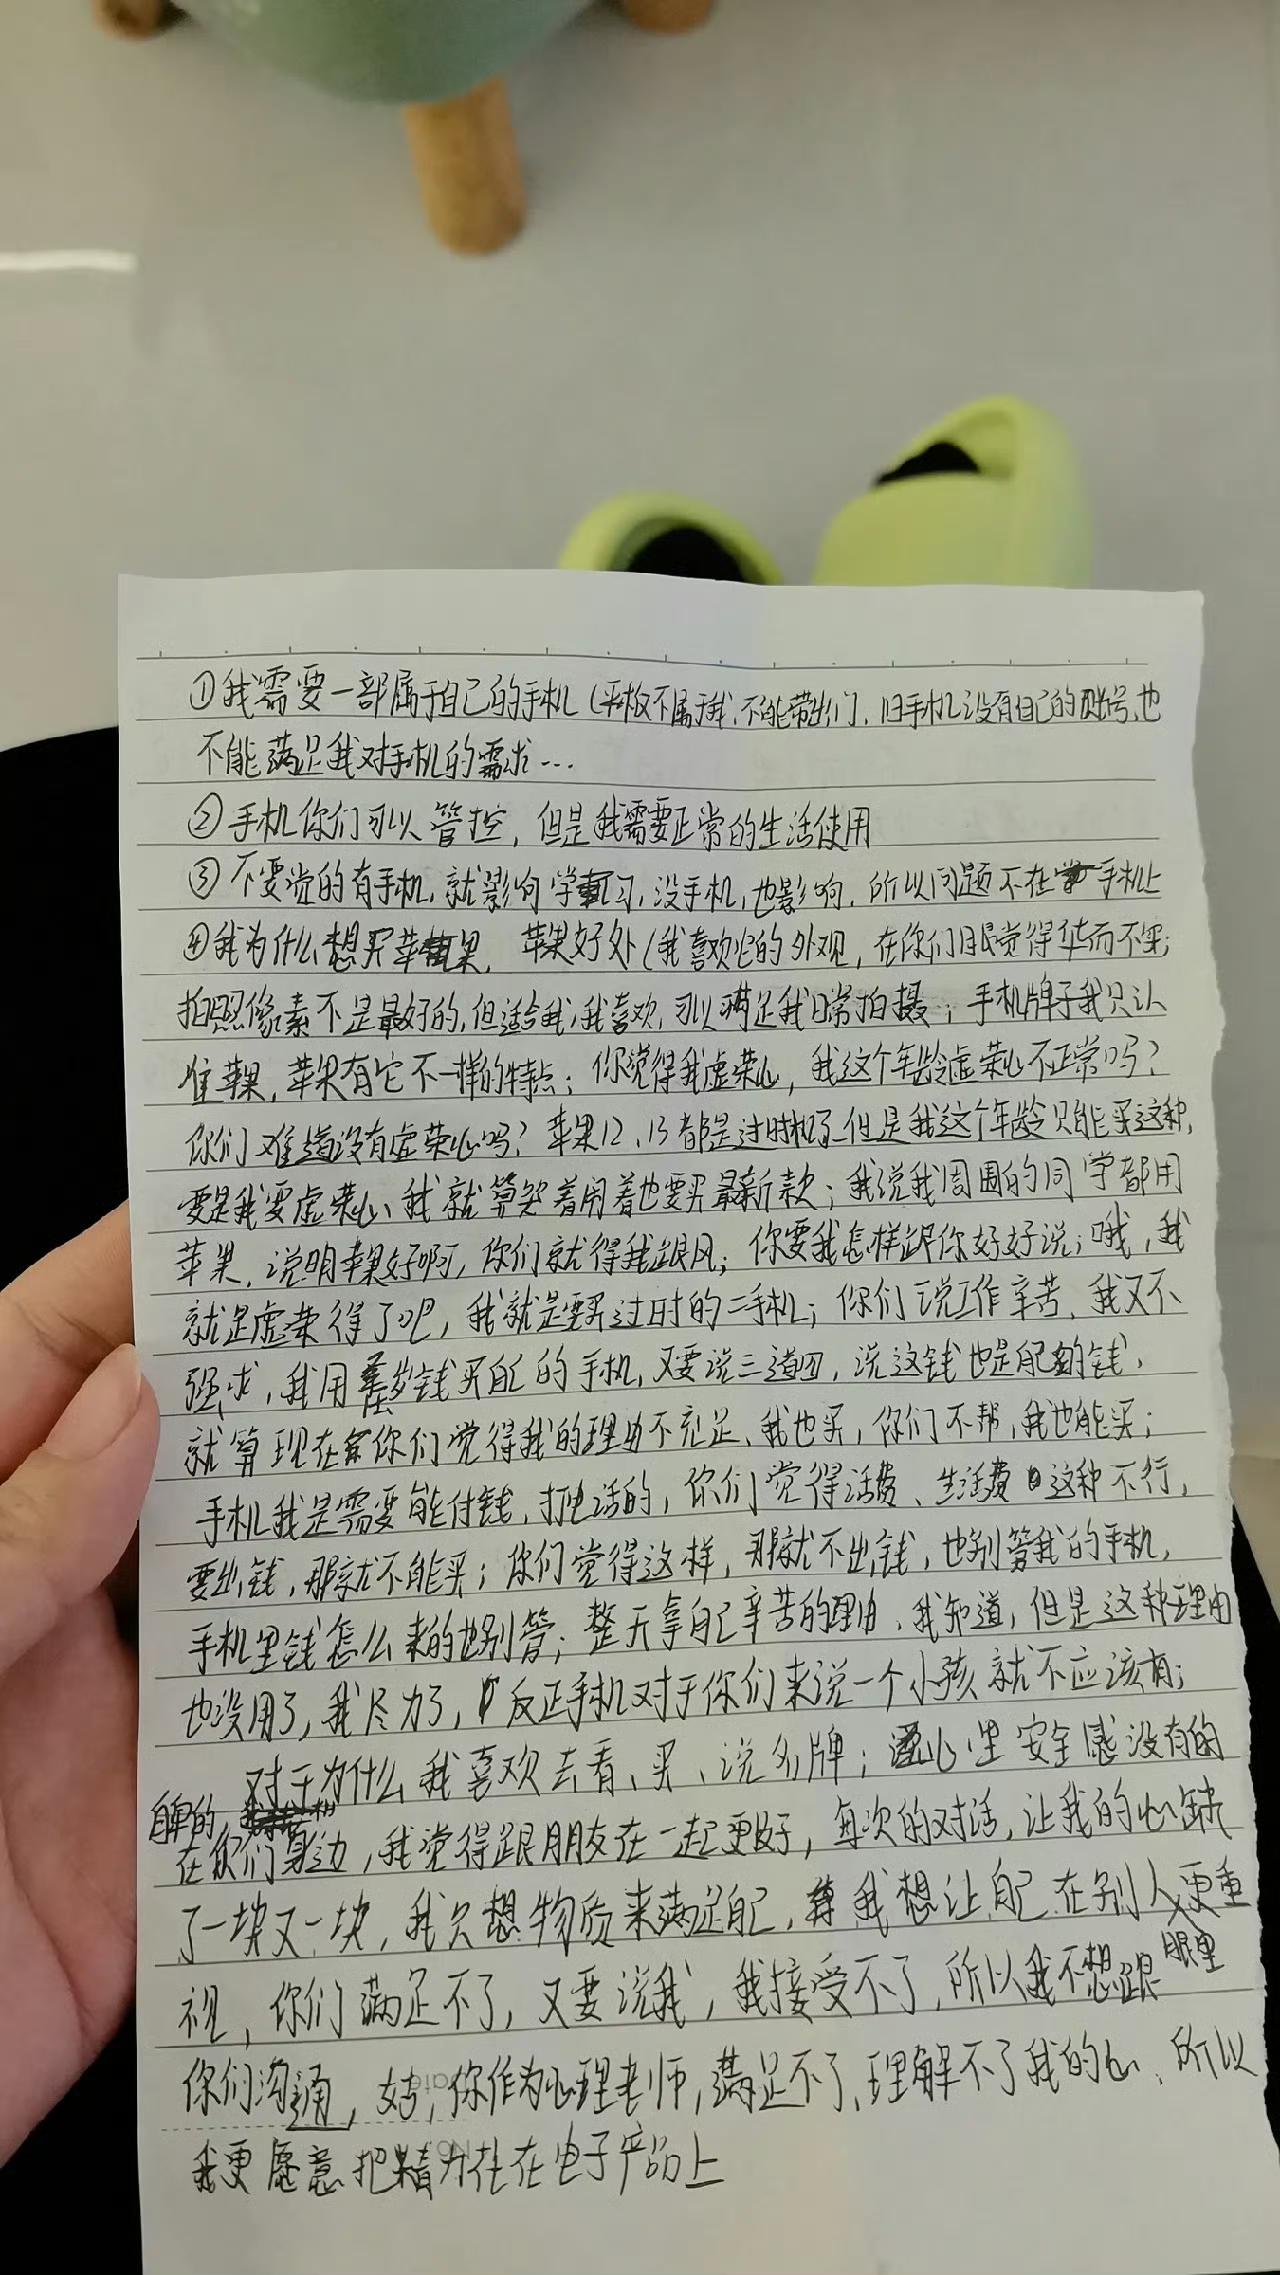 ①我需要一部属于自己的手机(平板不属于我、不能带出门,旧手机没有自己的账号,也
不能满足我对手机的需求…
②手机你们可以管控,但是我需要正常的生活使用
③不要说的有手机,就影响学习,没手机,也影响,所以问题不在手机上
④我为什么想买苹果,苹果好处(我喜欢它的外观,在你们眼觉得华而不实;
拍照像素不是最好的,但适合我,我喜欢,可以满足我日常拍摄;手机牌子我只认
准苹果,苹果有它不一样的特点;你觉得我虚荣心,我这个年龄虚荣心不正常吗?
你们难道没有虚荣心吗?苹果12、13都是过时机了,但是我这个年龄只能买这种,
要是我要虚荣心、我就算哭着闹着也要买最新款;我说我周围的同学都用
苹果,说明苹果好啊,你们就得我跟风;你要我怎样跟你好好说;哦,我
就是虚荣得了吧,我就是要买过时的二手机;你们说工作辛苦、我又不
强求,我用压岁钱买自己的手机,又要说三道四,说这钱也是的钱,
就算现在你们觉得我的理由不充足、我也买,你们不帮,我也能买;
手机我是需要能付钱,打电话的,你们觉得话费、生活费这种不行,
要出钱,那就不能买;你们觉得这样,那就不出钱,也别管我的手机,
手机里钱怎么来的也别管;整天拿自己辛苦的理由、我知道,但是这种理由
也没用了,我尽力了,反正手机对于你们来说一个小孩就不应该有;
对于为什么我喜欢去看、买、说名牌;心里安全感没有的
自卑的
在你们身边,我觉得跟朋友在一起更好,每次的对话,让我的心缺
了一块又一块,我只想物质来满足自己,我想让自己在别人更重
眼里
视,你们满足不了,又要说我,我接受不了,所以我不想跟
你们沟通,姑,你作为心理老师,满足不了、理解不了我的心、所以
我更愿意把精力花在电子产品上